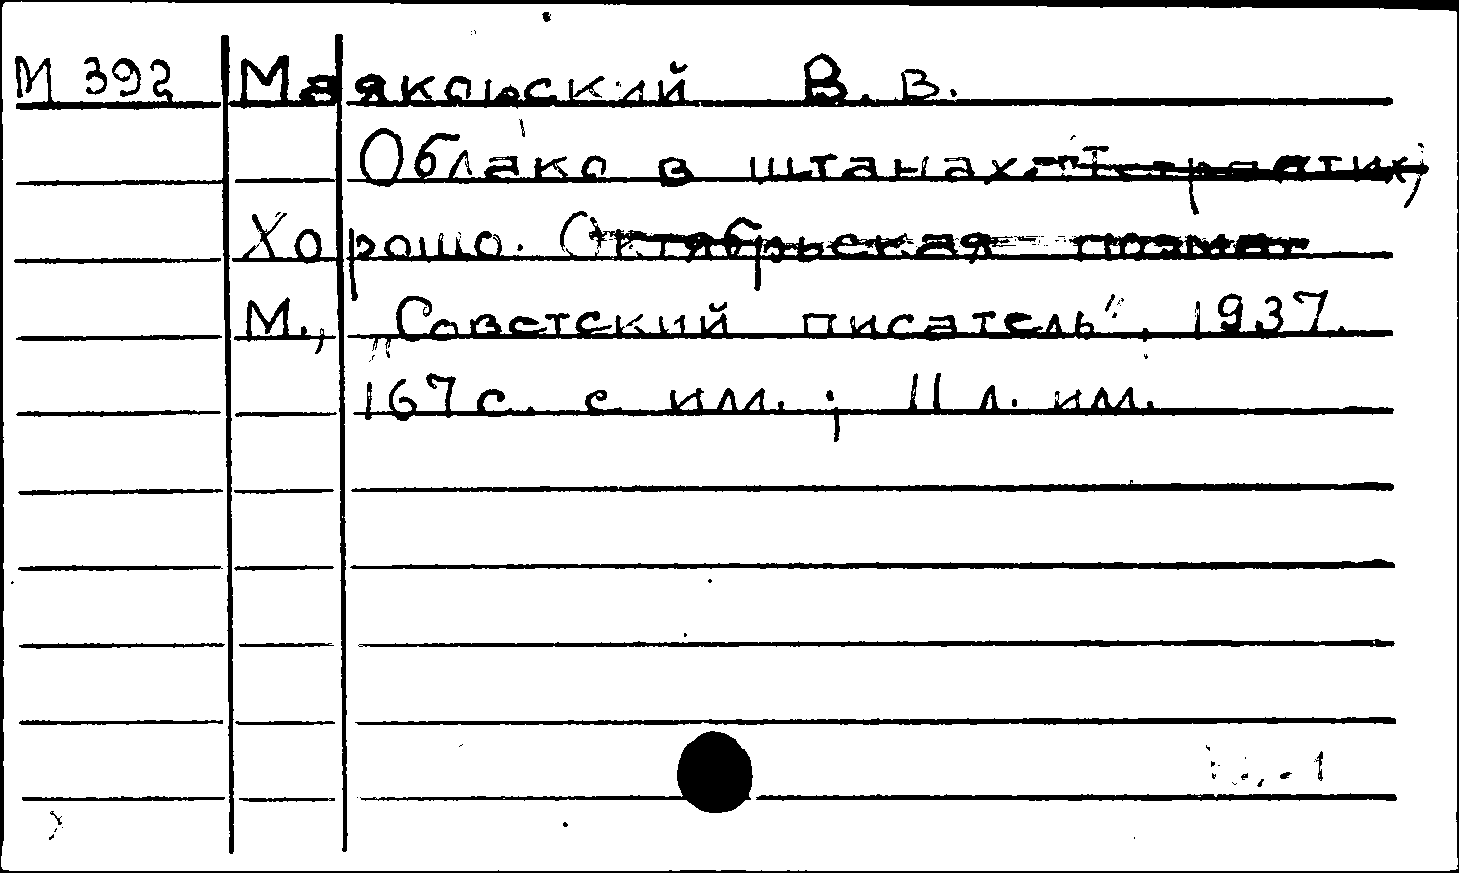 М 392 Маяковский В. В.
Облако в штанах. Тетраптих,
Хорошо. Октябрьская поэма.
М., „Советский писатель", 1937.
167 с. с ил. ; 11 л. ил.